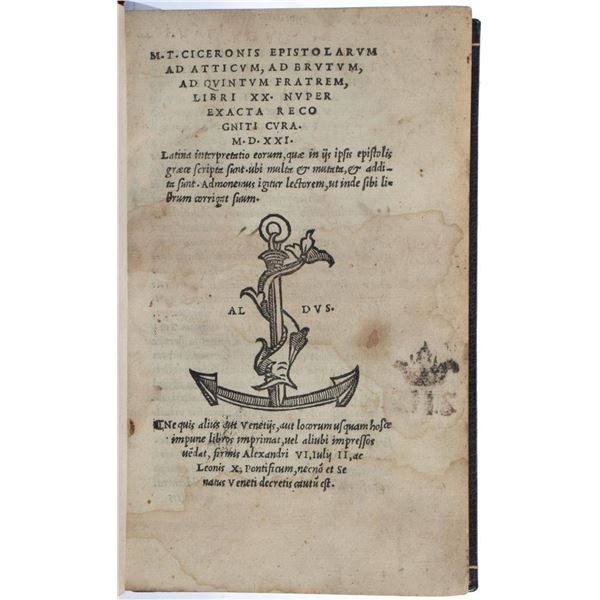 M.T.CICERONIS EPISTOLARVM
AD ATTICVM, AD BRVTVM,
AD QVINTVM FRATREM,
LIBRI XX. NVPER
EXACTA RECO
GNITI CVRA.
M.D.XXI.
Latina interpretatio eorum, quæ in ijs ipsis epistolis
græce scripta sunt. ubi multa & mutata, & addi-
ta sunt. Admonemus igitur lectorem, ut inde sibi li-
brum corrigat suum.
AL DVS.
Ne quis alius aut Venetijs, aut locorum usquam hosce
impune libros imprimat, uel alibi impressos
uēdat, firmis Alexandri VI, Iulij II, ac
Leonis X, Pontificum, necnō et Se
natus Veneti decretis cautū est.